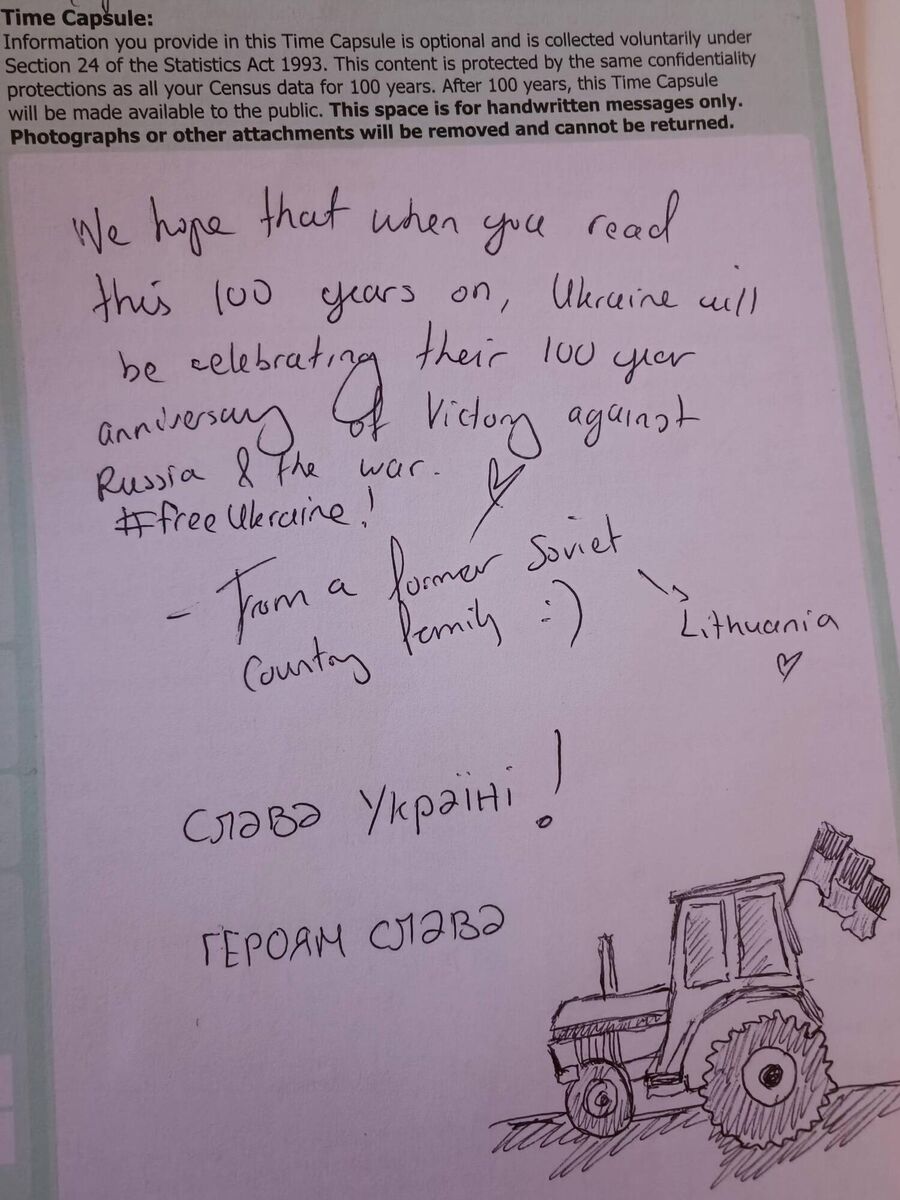 Time Capsule:
Information you provide in this Time Capsule is optional and is collected voluntarily under
Section 24 of the Statistics Act 1993. This content is protected by the same confidentiality
protections as all your Census data for 100 years. After 100 years, this Time Capsule
will be made available to the public. This space is for handwritten messages only.
Photographs or other attachments will be removed and cannot be returned.
We hope that when you read
this 100 years on, Ukraine will
be celebrating their 100 year
anniversary of Victory against
Russia & the war.
#freeUkraine!
- From a former Soviet
Country family :)
Lithuania
Слава Україні!
ГЕРОЯМ СЛАВА